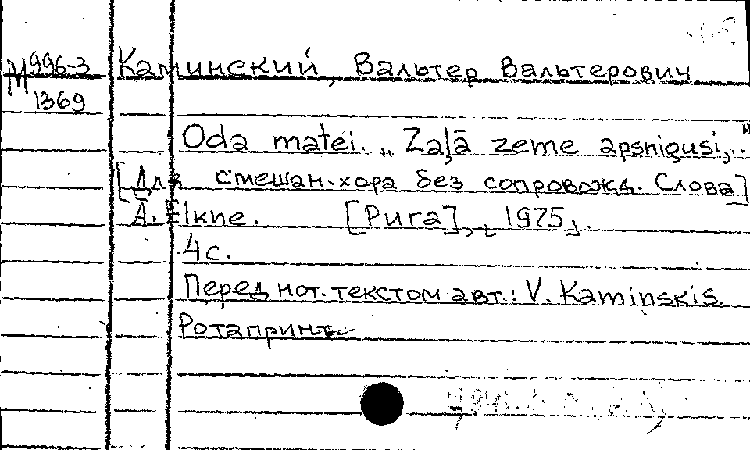 М 996-3
1369
Каминский, Вальтер Вальтерович
Oda matei. „Zaļā zeme apsnigusi,.."
[Для смешан. хора без сопровожд. Слова]
Ā. Elkne. [Рига], [1975].
4с.
Перед нот. текстом авт.: V. Kaminskis.
Ротапринт